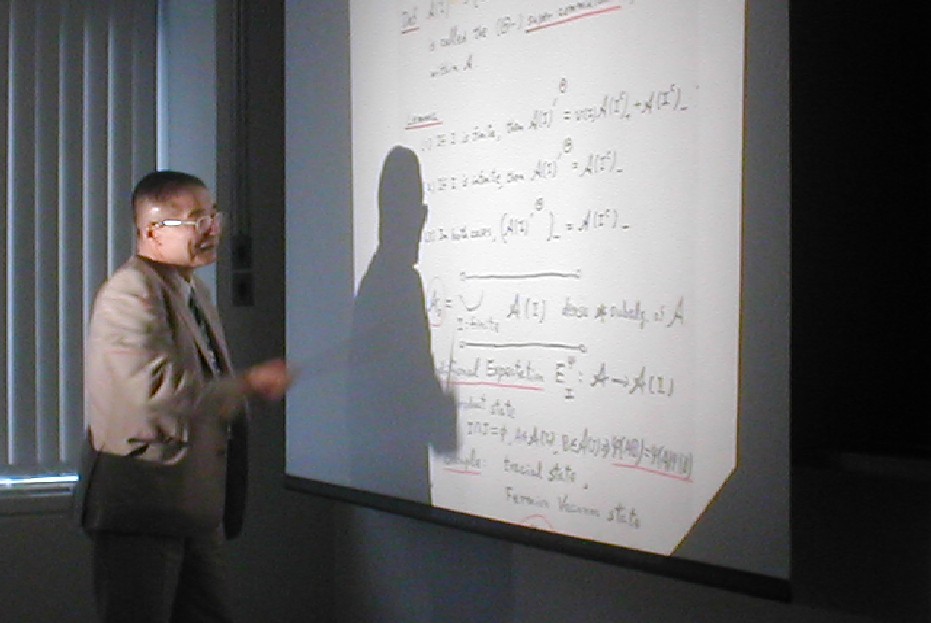 Def A(I)
is called the (Θ-) super commutant
within A.
Lemma
(1) If I is finite, then A(I)'^Θ = v(I)A(I^c)_+ + A(I^c)_-
If I is infinite, then A(I)'^Θ = A(I^c)_-
In both cases, (A(I)'^Θ)_- = A(I^c)_-
A_0 = ∪ A(I) dense * subalg. of A
I:finite
Expectation E_I^ψ : A → A(I)
state
I∩J=φ, A∈A(I), B∈A(J) ⇒ ψ(AB)=ψ(A)ψ(B)
tracial state,
Fermion Vacuum state